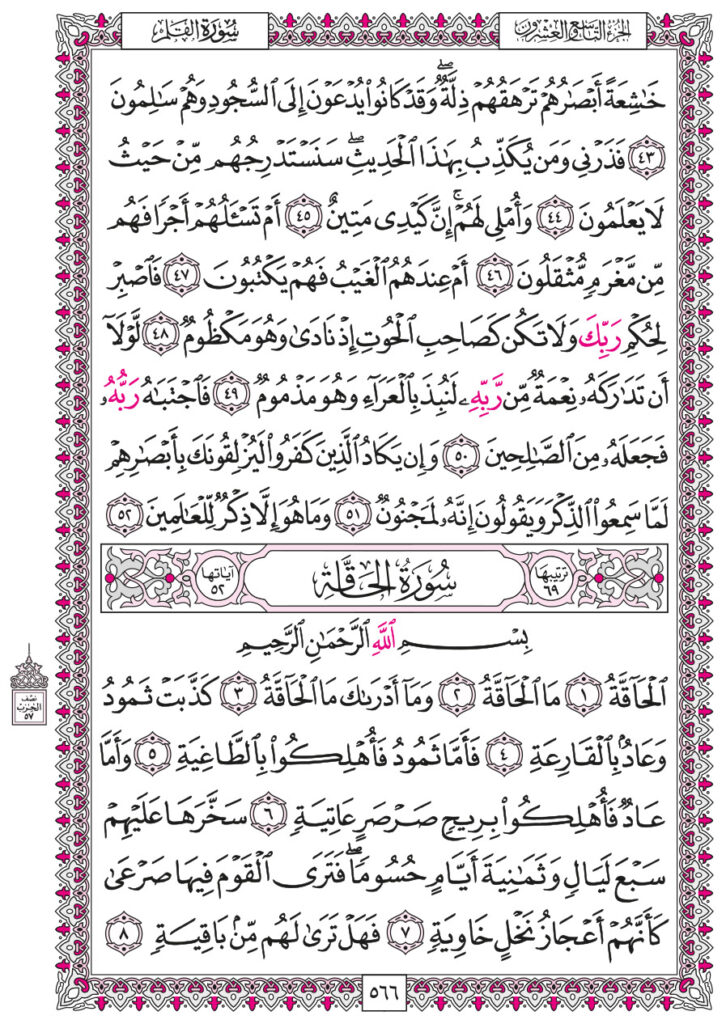 الجزء التاسع والعشرون
سورة القلم
خَٰشِعَةً أَبۡصَٰرُهُمۡ تَرۡهَقُهُمۡ ذِلَّةٞۖ وَقَدۡ كَانُواْ يُدۡعَوۡنَ إِلَى ٱلسُّجُودِ وَهُمۡ سَٰلِمُونَ
٤٣ فَذَرۡنِي وَمَن يُكَذِّبُ بِهَٰذَا ٱلۡحَدِيثِۖ سَنَسۡتَدۡرِجُهُم مِّنۡ حَيۡثُ
لَا يَعۡلَمُونَ ٤٤ وَأُمۡلِي لَهُمۡۚ إِنَّ كَيۡدِي مَتِينٌ ٤٥ أَمۡ تَسۡـَٔلُهُمۡ أَجۡرٗا فَهُم
مِّن مَّغۡرَمٖ مُّثۡقَلُونَ ٤٦ أَمۡ عِندَهُمُ ٱلۡغَيۡبُ فَهُمۡ يَكۡتُبُونَ ٤٧ فَٱصۡبِرۡ
لِحُكۡمِ رَبِّكَ وَلَا تَكُن كَصَاحِبِ ٱلۡحُوتِ إِذۡ نَادَىٰ وَهُوَ مَكۡظُومٞ ٤٨ لَّوۡلَآ
أَن تَدَٰرَكَهُۥ نِعۡمَةٞ مِّن رَّبِّهِۦ لَنُبِذَ بِٱلۡعَرَآءِ وَهُوَ مَذۡمُومٞ ٤٩ فَٱجۡتَبَٰهُ رَبُّهُۥ
فَجَعَلَهُۥ مِنَ ٱلصَّٰلِحِينَ ٥٠ وَإِن يَكَادُ ٱلَّذِينَ كَفَرُواْ لَيُزۡلِقُونَكَ بِأَبۡصَٰرِهِمۡ
لَمَّا سَمِعُواْ ٱلذِّكۡرَ وَيَقُولُونَ إِنَّهُۥ لَمَجۡنُونٞ ٥١ وَمَا هُوَ إِلَّا ذِكۡرٞ لِّلۡعَٰلَمِينَ ٥٢
ترتيبها ٦٩ سُورَةُ الحَاقَّة آياتها ٥٢
بِسۡمِ ٱللَّهِ ٱلرَّحۡمَٰنِ ٱلرَّحِيمِ
ٱلۡحَآقَّةُ ١ مَا ٱلۡحَآقَّةُ ٢ وَمَآ أَدۡرَىٰكَ مَا ٱلۡحَآقَّةُ ٣ كَذَّبَتۡ ثَمُودُ
وَعَادُۢ بِٱلۡقَارِعَةِ ٤ فَأَمَّا ثَمُودُ فَأُهۡلِكُواْ بِٱلطَّاغِيَةِ ٥ وَأَمَّا
عَادٞ فَأُهۡلِكُواْ بِرِيحٖ صَرۡصَرٍ عَاتِيَةٖ ٦ سَخَّرَهَا عَلَيۡهِمۡ
سَبۡعَ لَيَالٖ وَثَمَٰنِيَةَ أَيَّامٍ حُسُومٗاۖ فَتَرَى ٱلۡقَوۡمَ فِيهَا صَرۡعَىٰ
كَأَنَّهُمۡ أَعۡجَازُ نَخۡلٍ خَاوِيَةٖ ٧ فَهَلۡ تَرَىٰ لَهُم مِّنۢ بَاقِيَةٖ ٨
نصف
الحزب
٥٧
٥٦٦